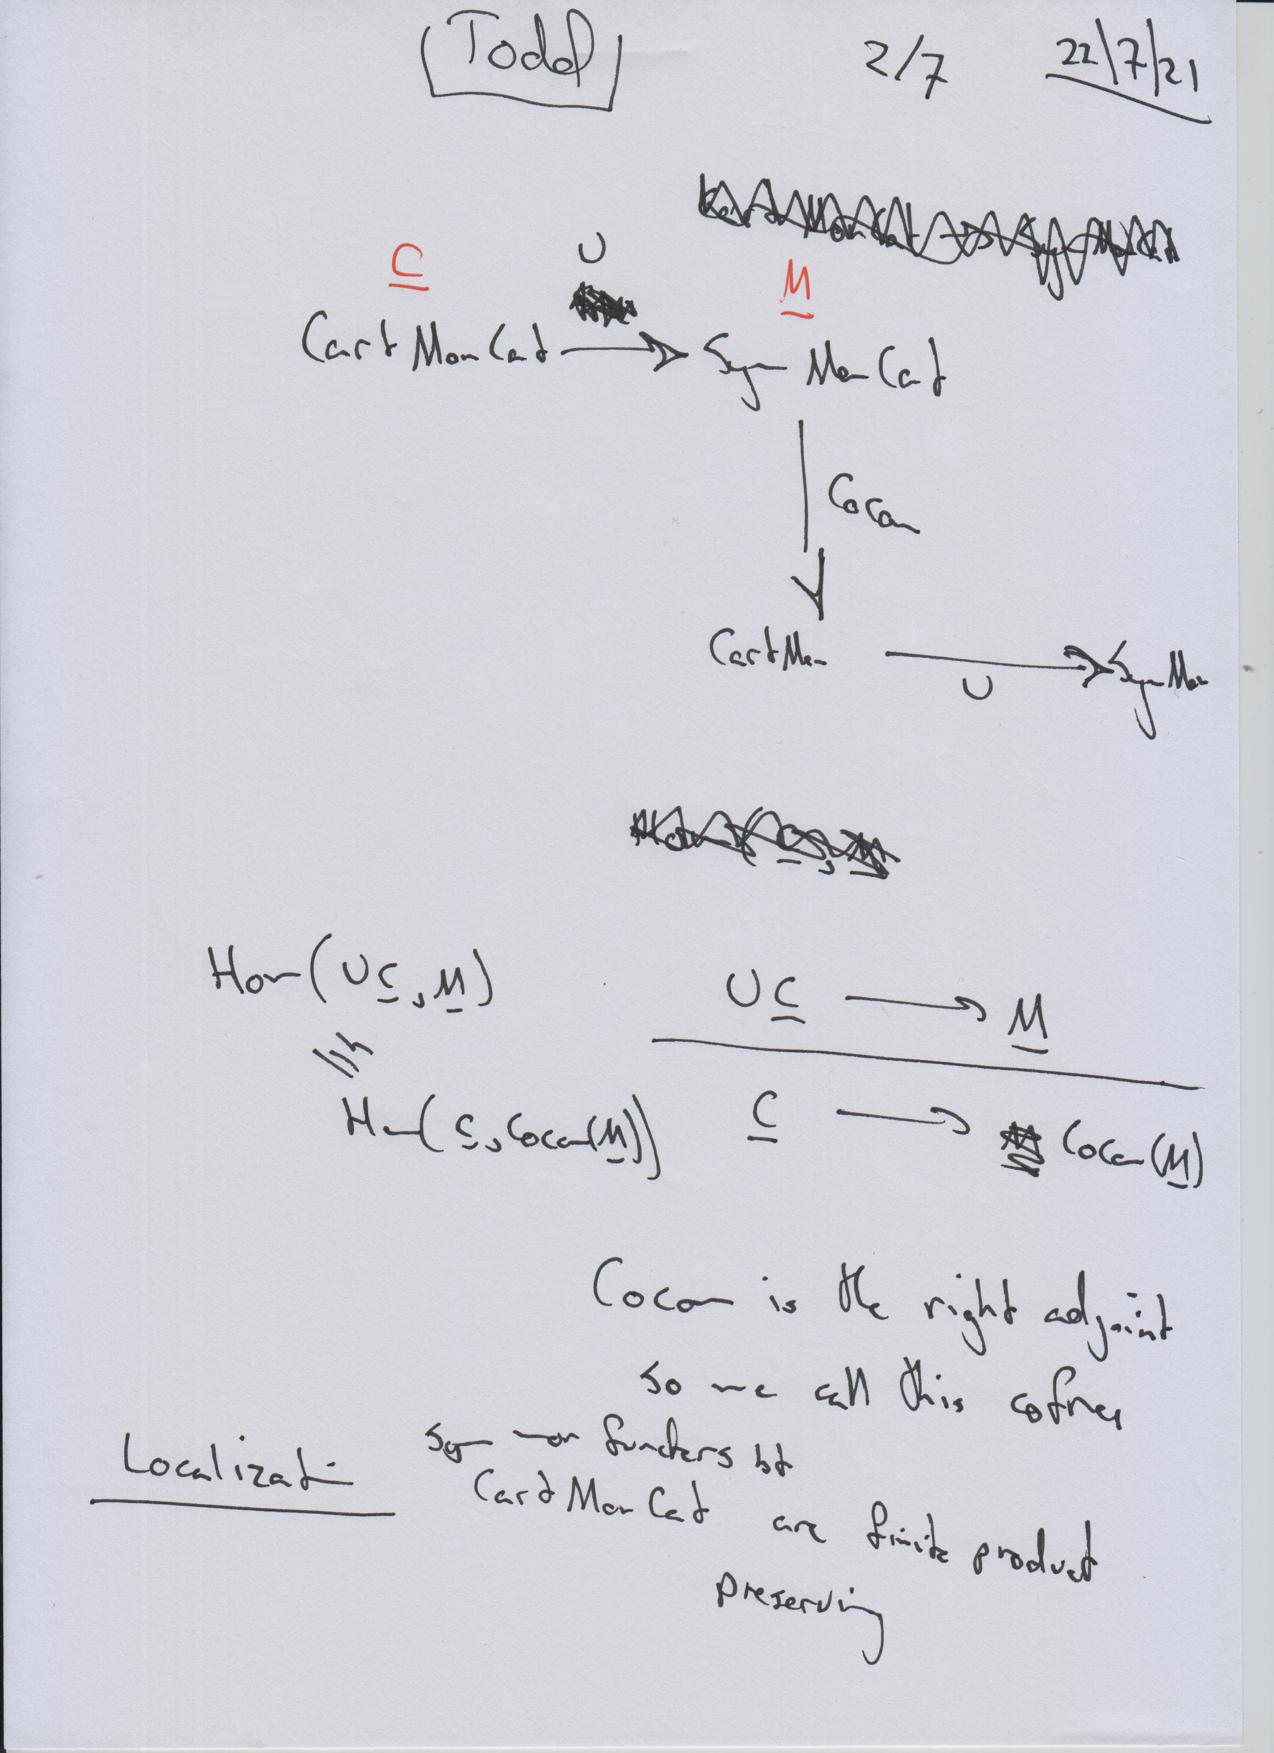 Todd 2/7 22/7/21
C U M
CartMonCat → SymMonCat
Cocom
CartMon → SymMon
U
Hom(UC, M) UC → M
≅
Hom(C, Cocom(M)) C → Cocom(M)
Cocom is the right adjoint
so we call this cofree
Localization sym mon functors bt
CartMonCat are finite product
preserving